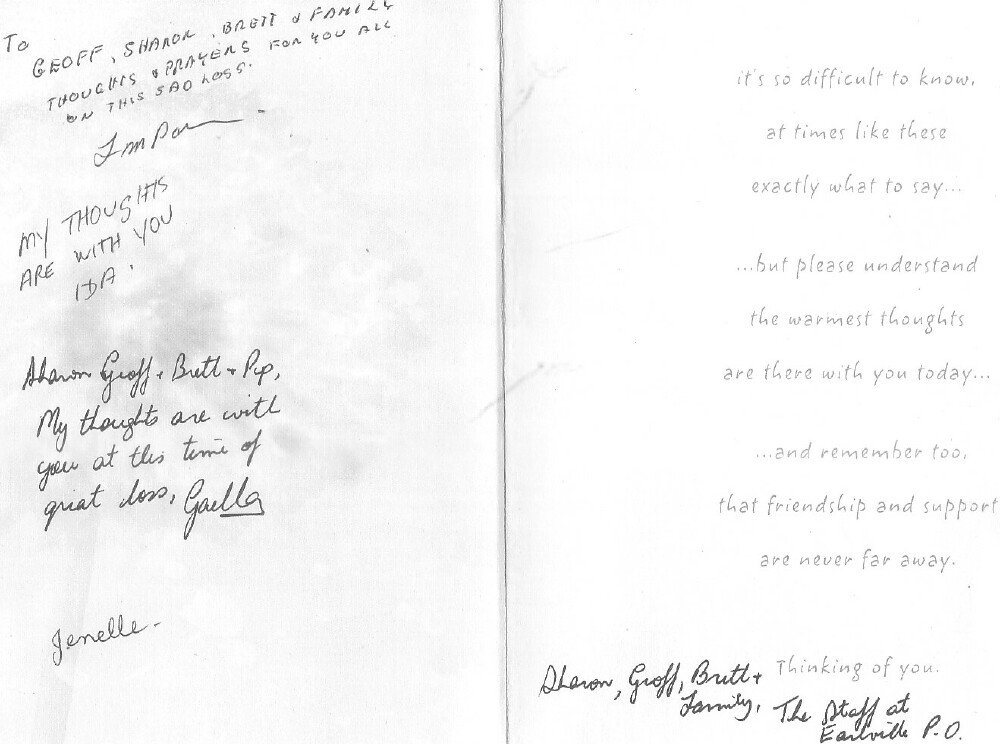 To
GEOFF, SHARON, BRETT & FAMILY
THOUGHTS & PRAYERS FOR YOU ALL
ON THIS SAD LOSS.
MY THOUGHTS
ARE WITH YOU
IDA.
Sharon Geoff, Brett + Pip,
My thoughts are with
you at this time of
great loss,
Jenelle.
it's so difficult to know,
at times like these
exactly what to say...
...but please understand
the warmest thoughts
are there with you today...
...and remember too,
that friendship and support
are never far away.
Thinking of you.
Sharon, Geoff, Brett +
Family, The Staff at
Earlville P.O.